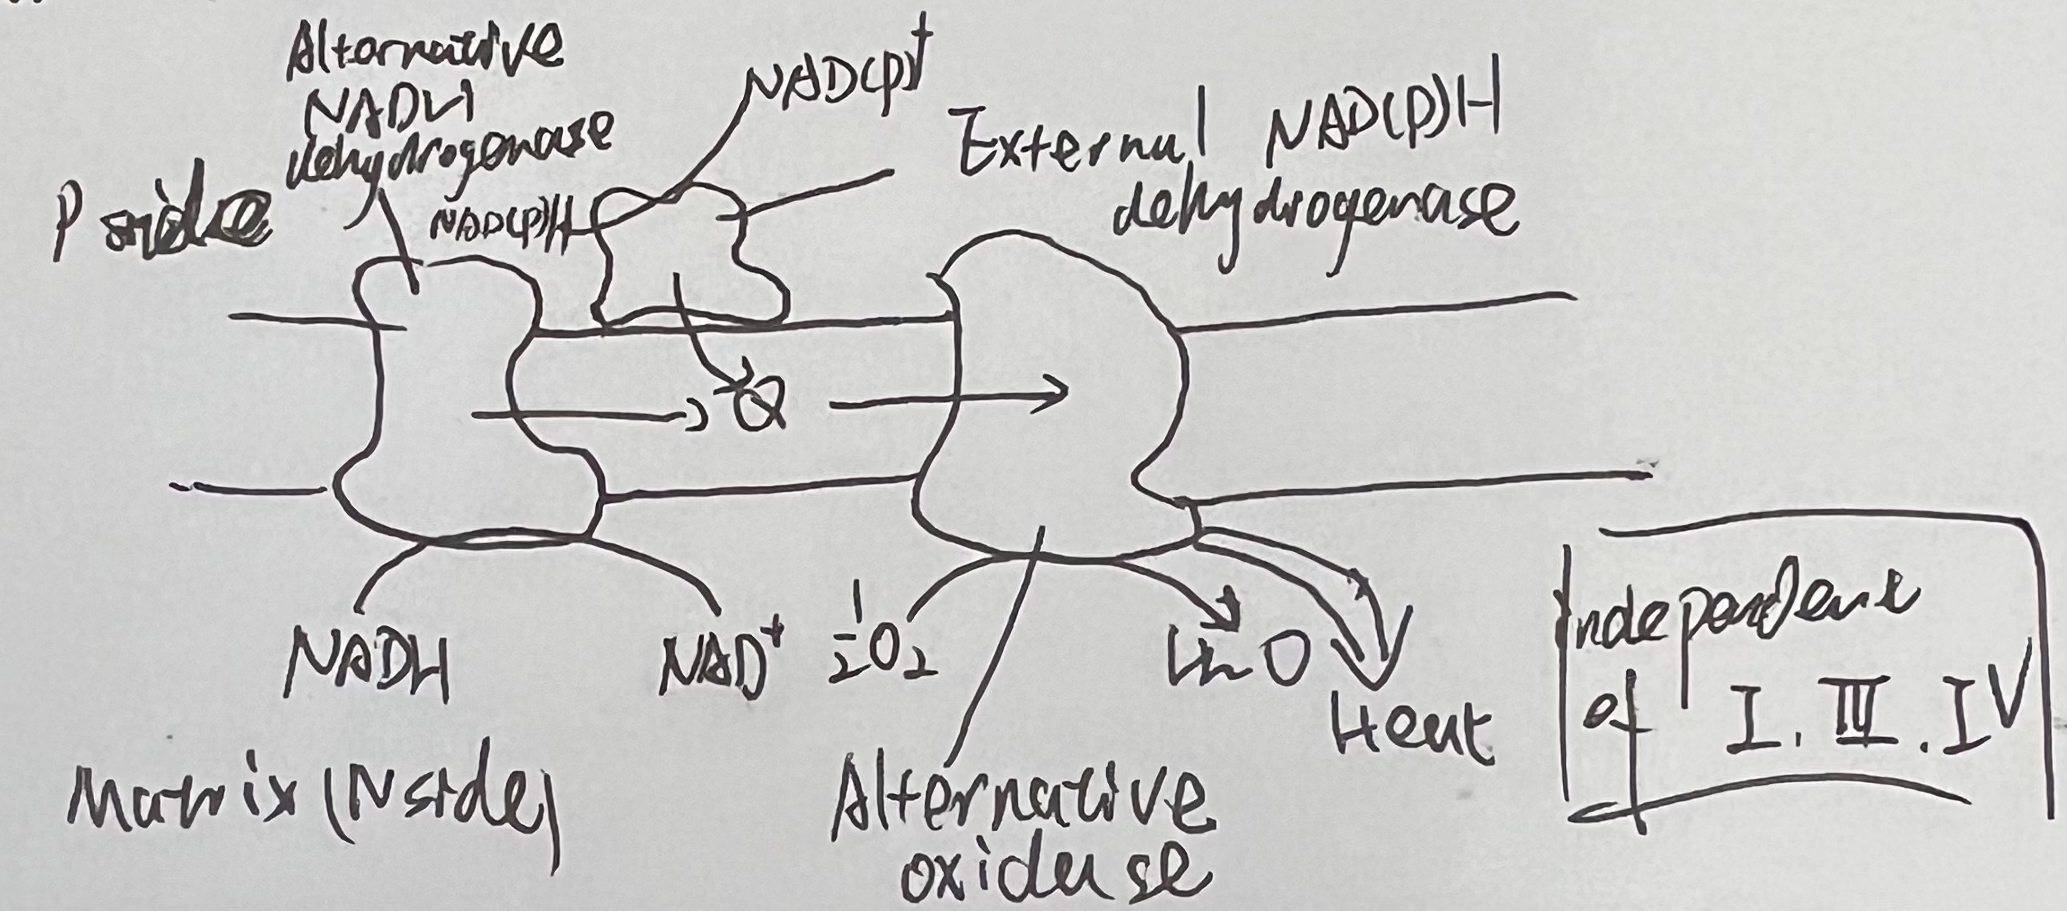 Alternative
NADH
dehydrogenase
NAD(P)+
External NAD(P)H
dehydrogenase
P side
NAD(P)H
Q
NADH
NAD+
1/2 O2
H2O
Heat
Independent
of I. III. IV
Matrix (N side)
Alternative
oxidase